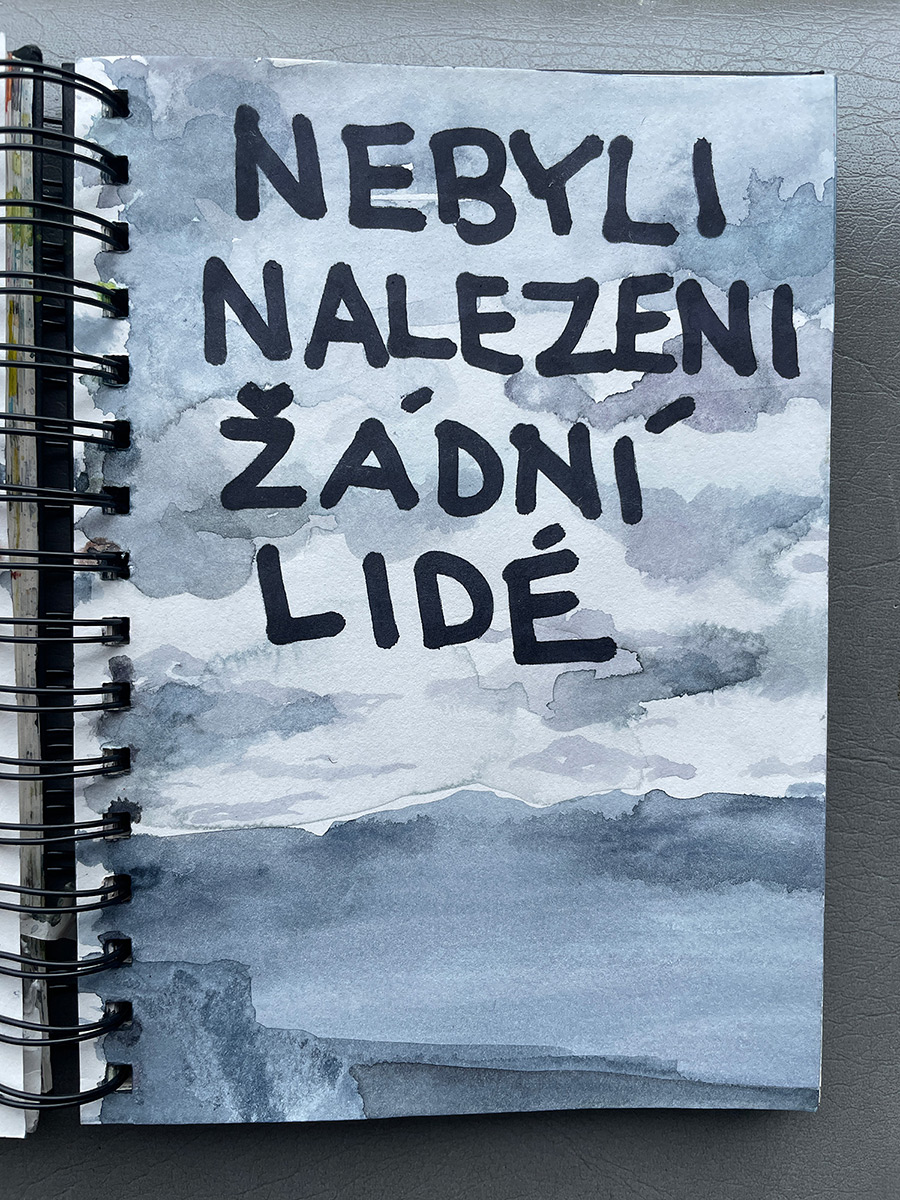 NEBYLI
NALEZENI
ŽÁDNÍ
LIDÉ